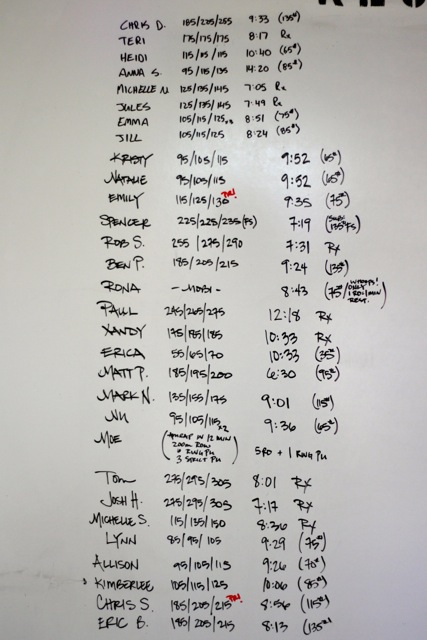 CHRIS D. 185/225/255 9:33 (135#)
TERI 175/175/175 8:17 Rx
HEIDI 115/115/115 10:40 (65#)
ANNA S. 95/115/135 14:20 (85#)
MICHELLE N 125/135/145 7:05 Rx
JULES 125/135/145 7:49 Rx
EMMA 105/115/125 8:51 (75#)
JILL 105/115/125 8:24 (85#)
KRISTY 95/105/115 9:52 (65#)
NATALIE 95/105/115 9:52 (65#)
EMILY 115/125/130 PR! 9:35 (75#)
SPENCER 225/225/235(FS) 7:19 (135#FS)
ROB S. 255/275/290 7:31 Rx
BEN P. 185/205/215 9:24 (135#)
RONA - MOBY - 8:43 (75#/WHOOPS! ONLY 1 RD. 1 MIN REST.)
PAUL 245/265/275 12:18 Rx
XANDY 175/185/185 10:33 Rx
ERICA 55/65/70 10:33 (35#)
MATT P. 185/195/200 6:30 (95#)
MARK N. 135/155/175 9:01 (115#)
95/105/115 9:36 (65#)
MOE (AMRAP IN 12 MIN 5RD + 1 RING PU
200M ROW
RING PU
3 STRICT PU)
TOM 275/295/305 8:01 Rx
JOSH H. 275/295/305 7:17 Rx
MICHELLE S. 115/135/150 8:36 Rx
LYNN 85/95/105 9:29 (75#)
ALLISON 95/105/115 9:26 (70#)
KIMBERLEE 105/115/125 10:06 (85#)
CHRIS S. 185/205/215 PR! 8:56 (115#)
ERIC B. 185/205/215 8:13 (135#)